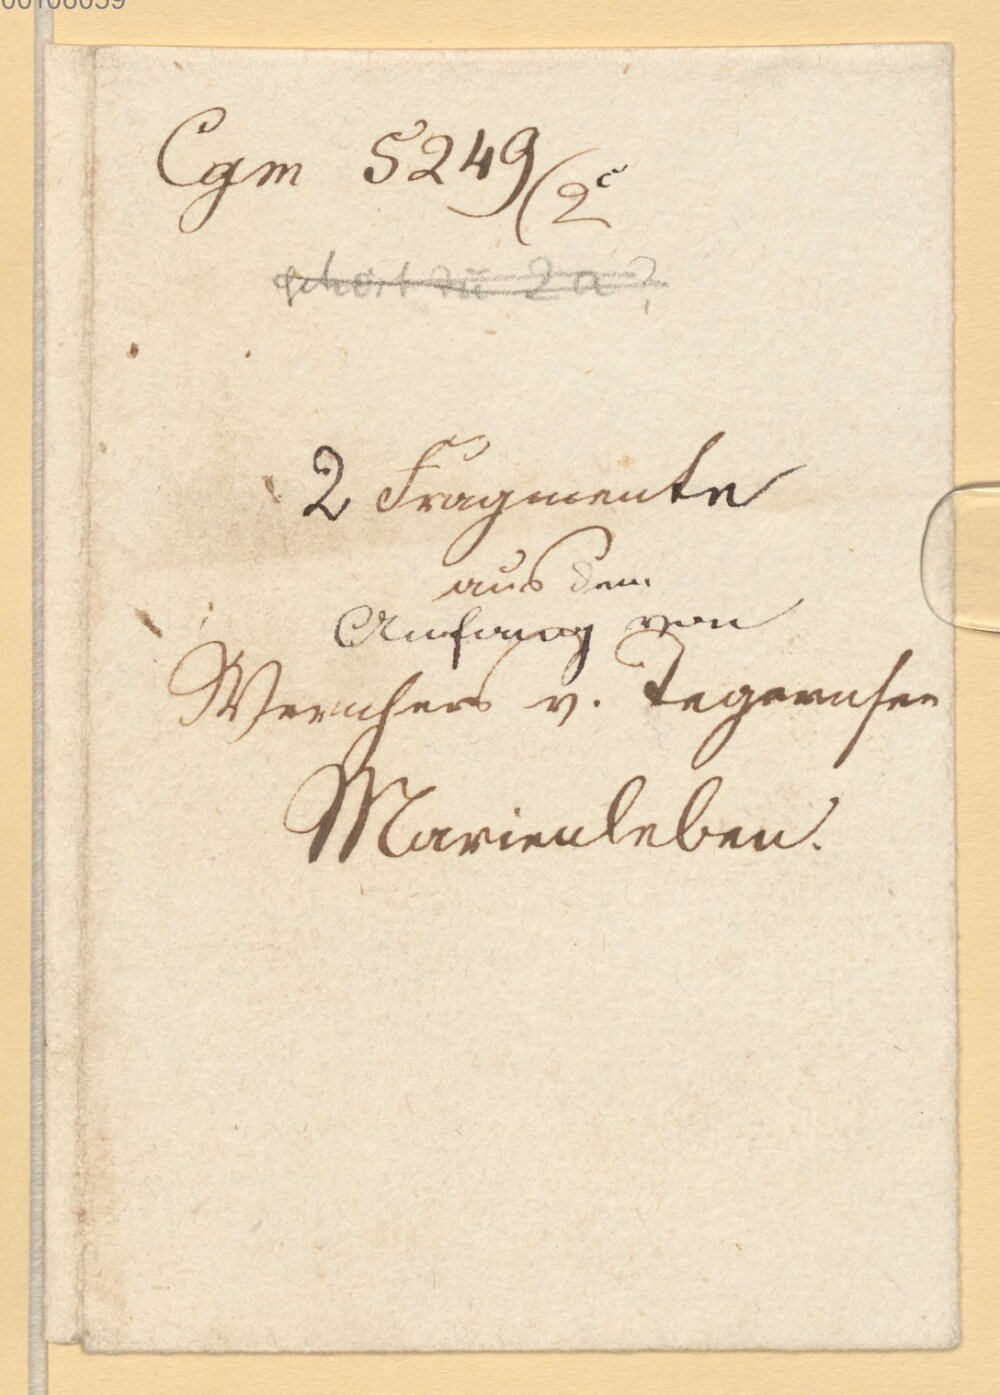 00106039
Cgm 5249/2c
gehört zu 2a?
2 Fragmente
aus dem
Anfang von
Wernhers v. Tegernsee
Marienleben.